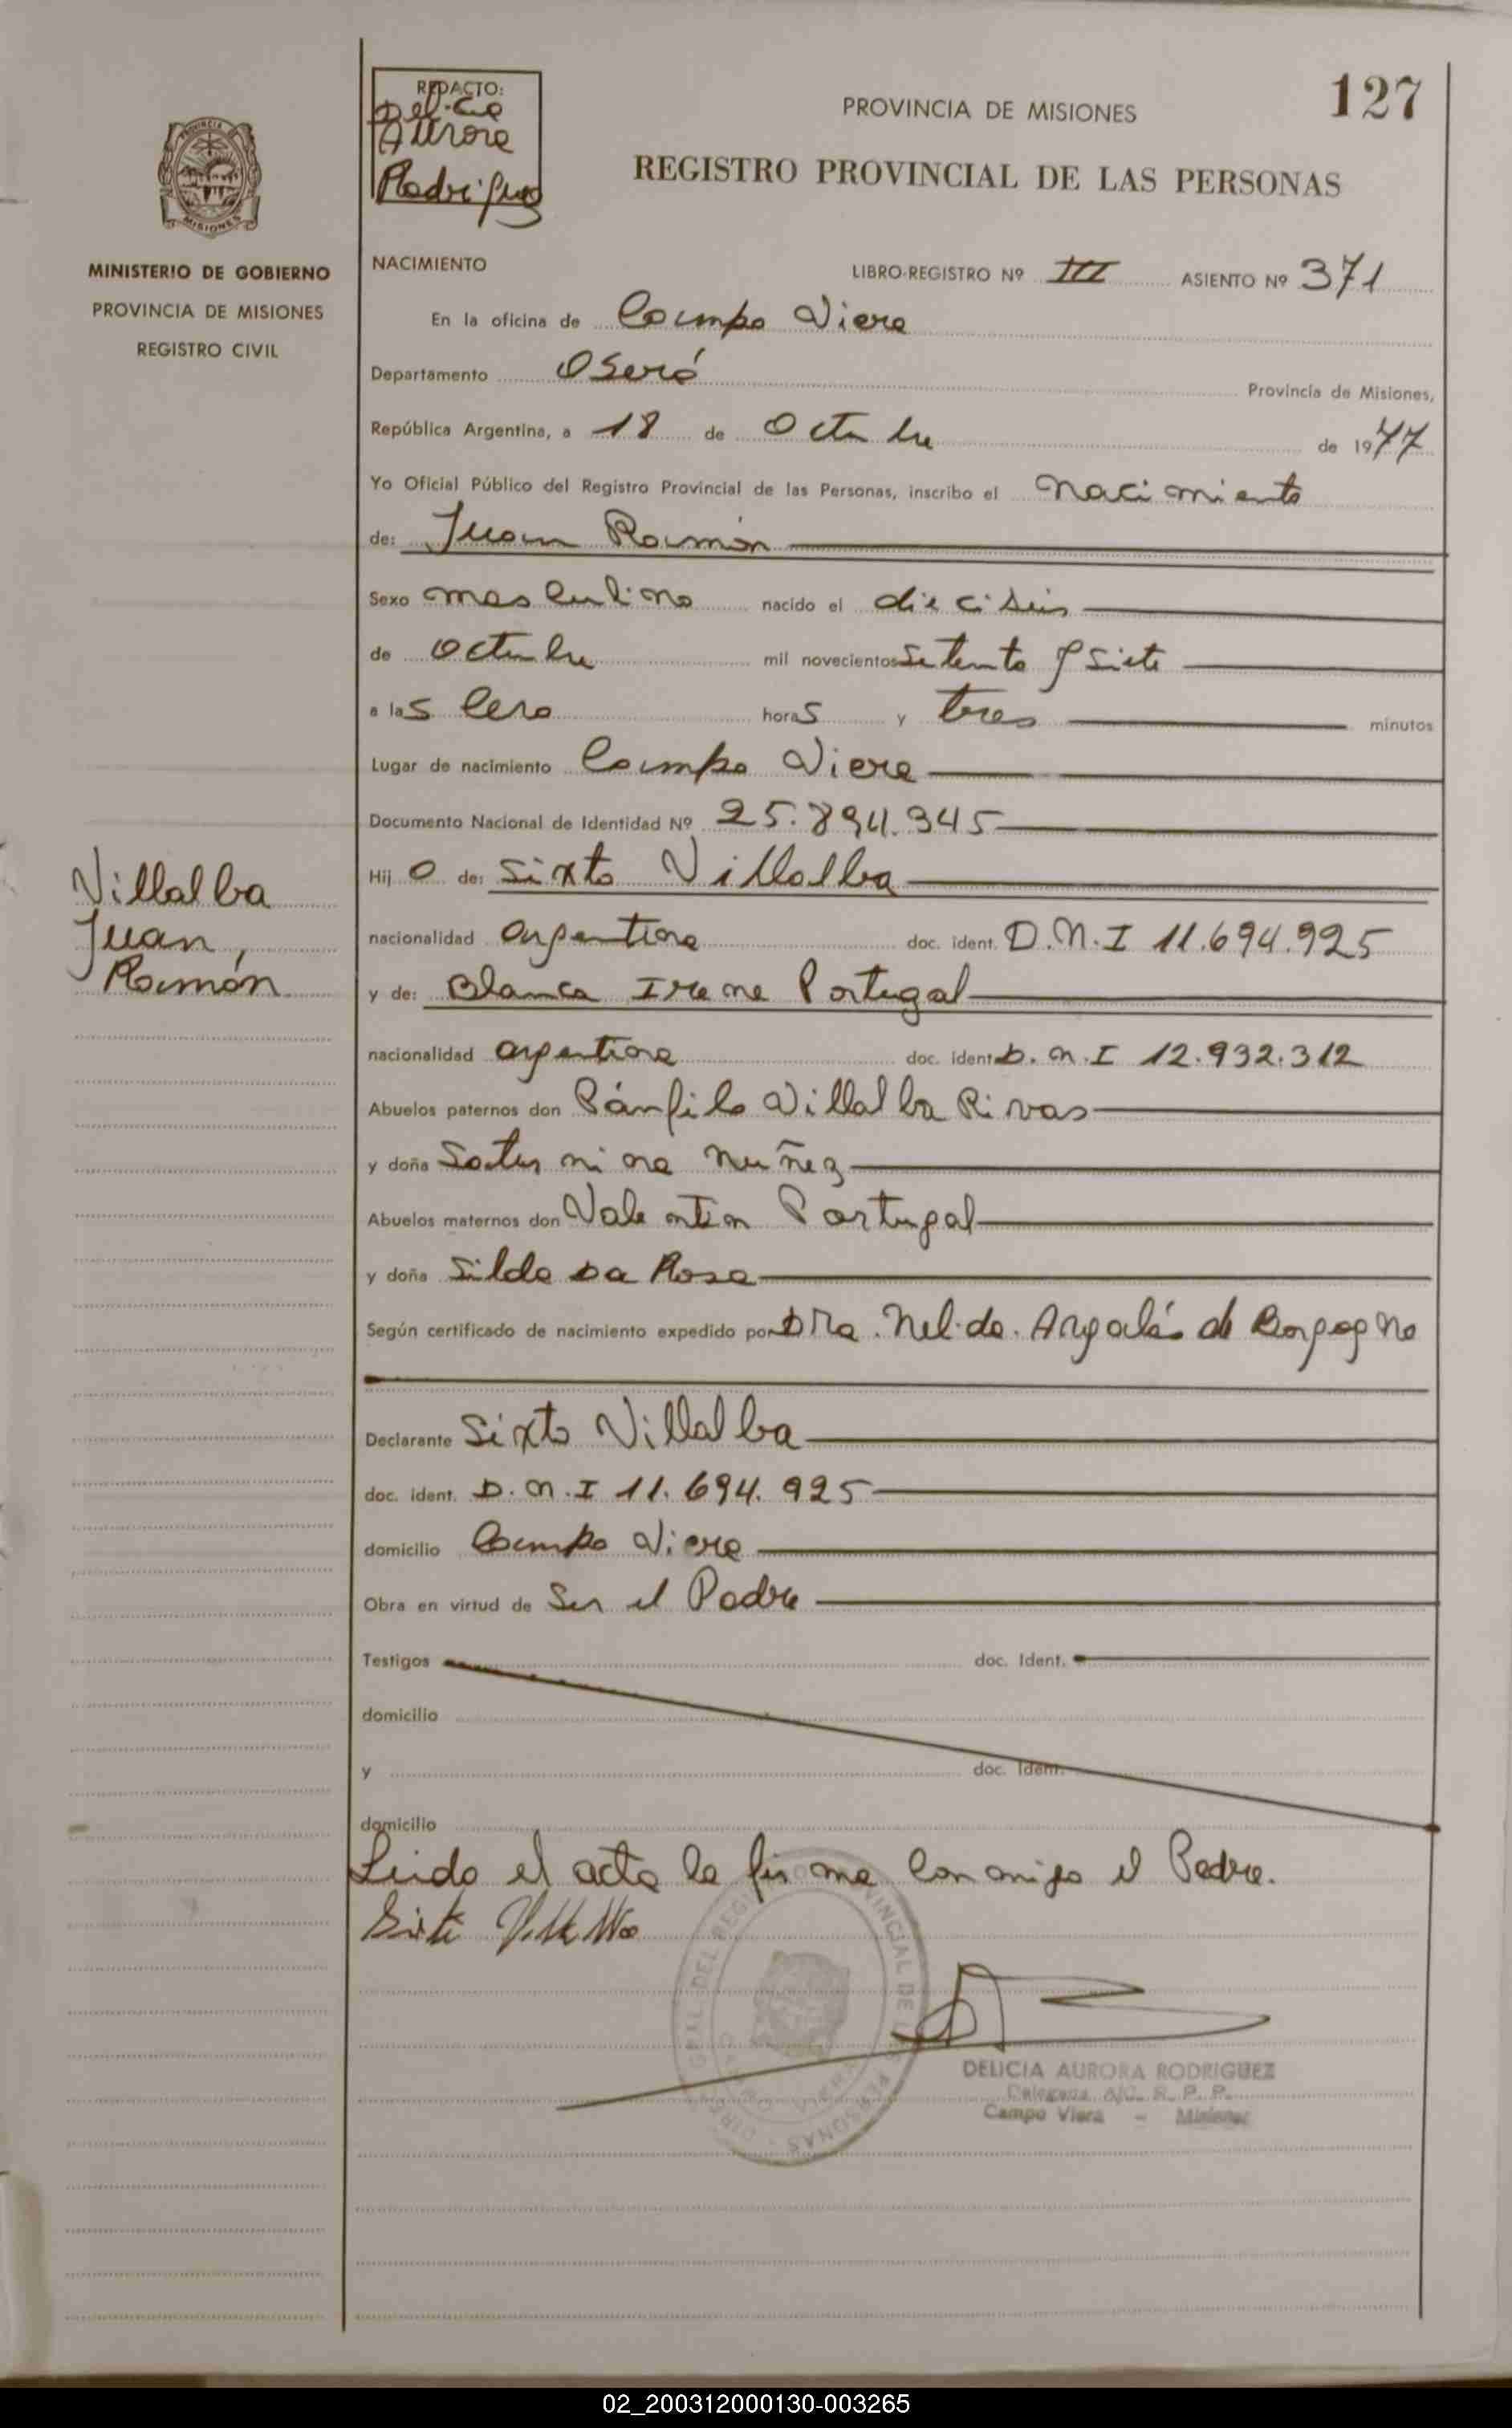 127
REDACTO:
Delicia
Aurora
Rodriguez
PROVINCIA DE MISIONES
REGISTRO PROVINCIAL DE LAS PERSONAS
MISIONES
MINISTERIO DE GOBIERNO
PROVINCIA DE MISIONES
REGISTRO CIVIL
NACIMIENTO LIBRO-REGISTRO Nº III ASIENTO Nº 371
En la oficina de Campo Viera
Departamento Oberá Provincia de Misiones,
República Argentina, a 18 de Octubre de 1977
Yo Oficial Público del Registro Provincial de las Personas, inscribo el nacimiento
de: Juan Ramón
Sexo masculino nacido el dieciseis
de octubre mil novecientos setenta y siete
a las cero horas y tres minutos
Lugar de nacimiento Campo Viera
Documento Nacional de Identidad Nº 25.894.345
Villalba
Juan,
Ramón
Hijo de: Sixto Villalba
nacionalidad argentina doc. ident. D.N.I 11.694.925
y de: Blanca Irene Portugal
nacionalidad argentina doc. ident. D.N.I 12.932.312
Abuelos paternos don Pánfilo Villalba Rivas
y doña Saturnina Nuñez
Abuelos maternos don Valentin Portugal
y doña Silda Da Rosa
Según certificado de nacimiento expedido por Dra. Nelida. de
Declarante Sixto Villalba
doc. ident. D.N.I 11.694.925
domicilio Campo Viera
Obra en virtud de Ser el Padre
Testigos doc. Ident.
domicilio
y doc. Ident.
domicilio
Leido el acta la firma conmigo el Padre.
Sixto Villalba
DELICIA AURORA RODRIGUEZ
Delegada A/C. R. P. P.
Campo Viera - Misiones
02_200312000130-003265